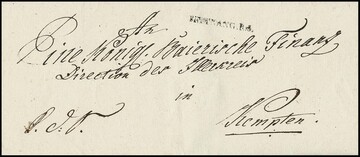 An
Eine Königl. Baierische Finanz
Direction des Illerkreis
in
Kempten.